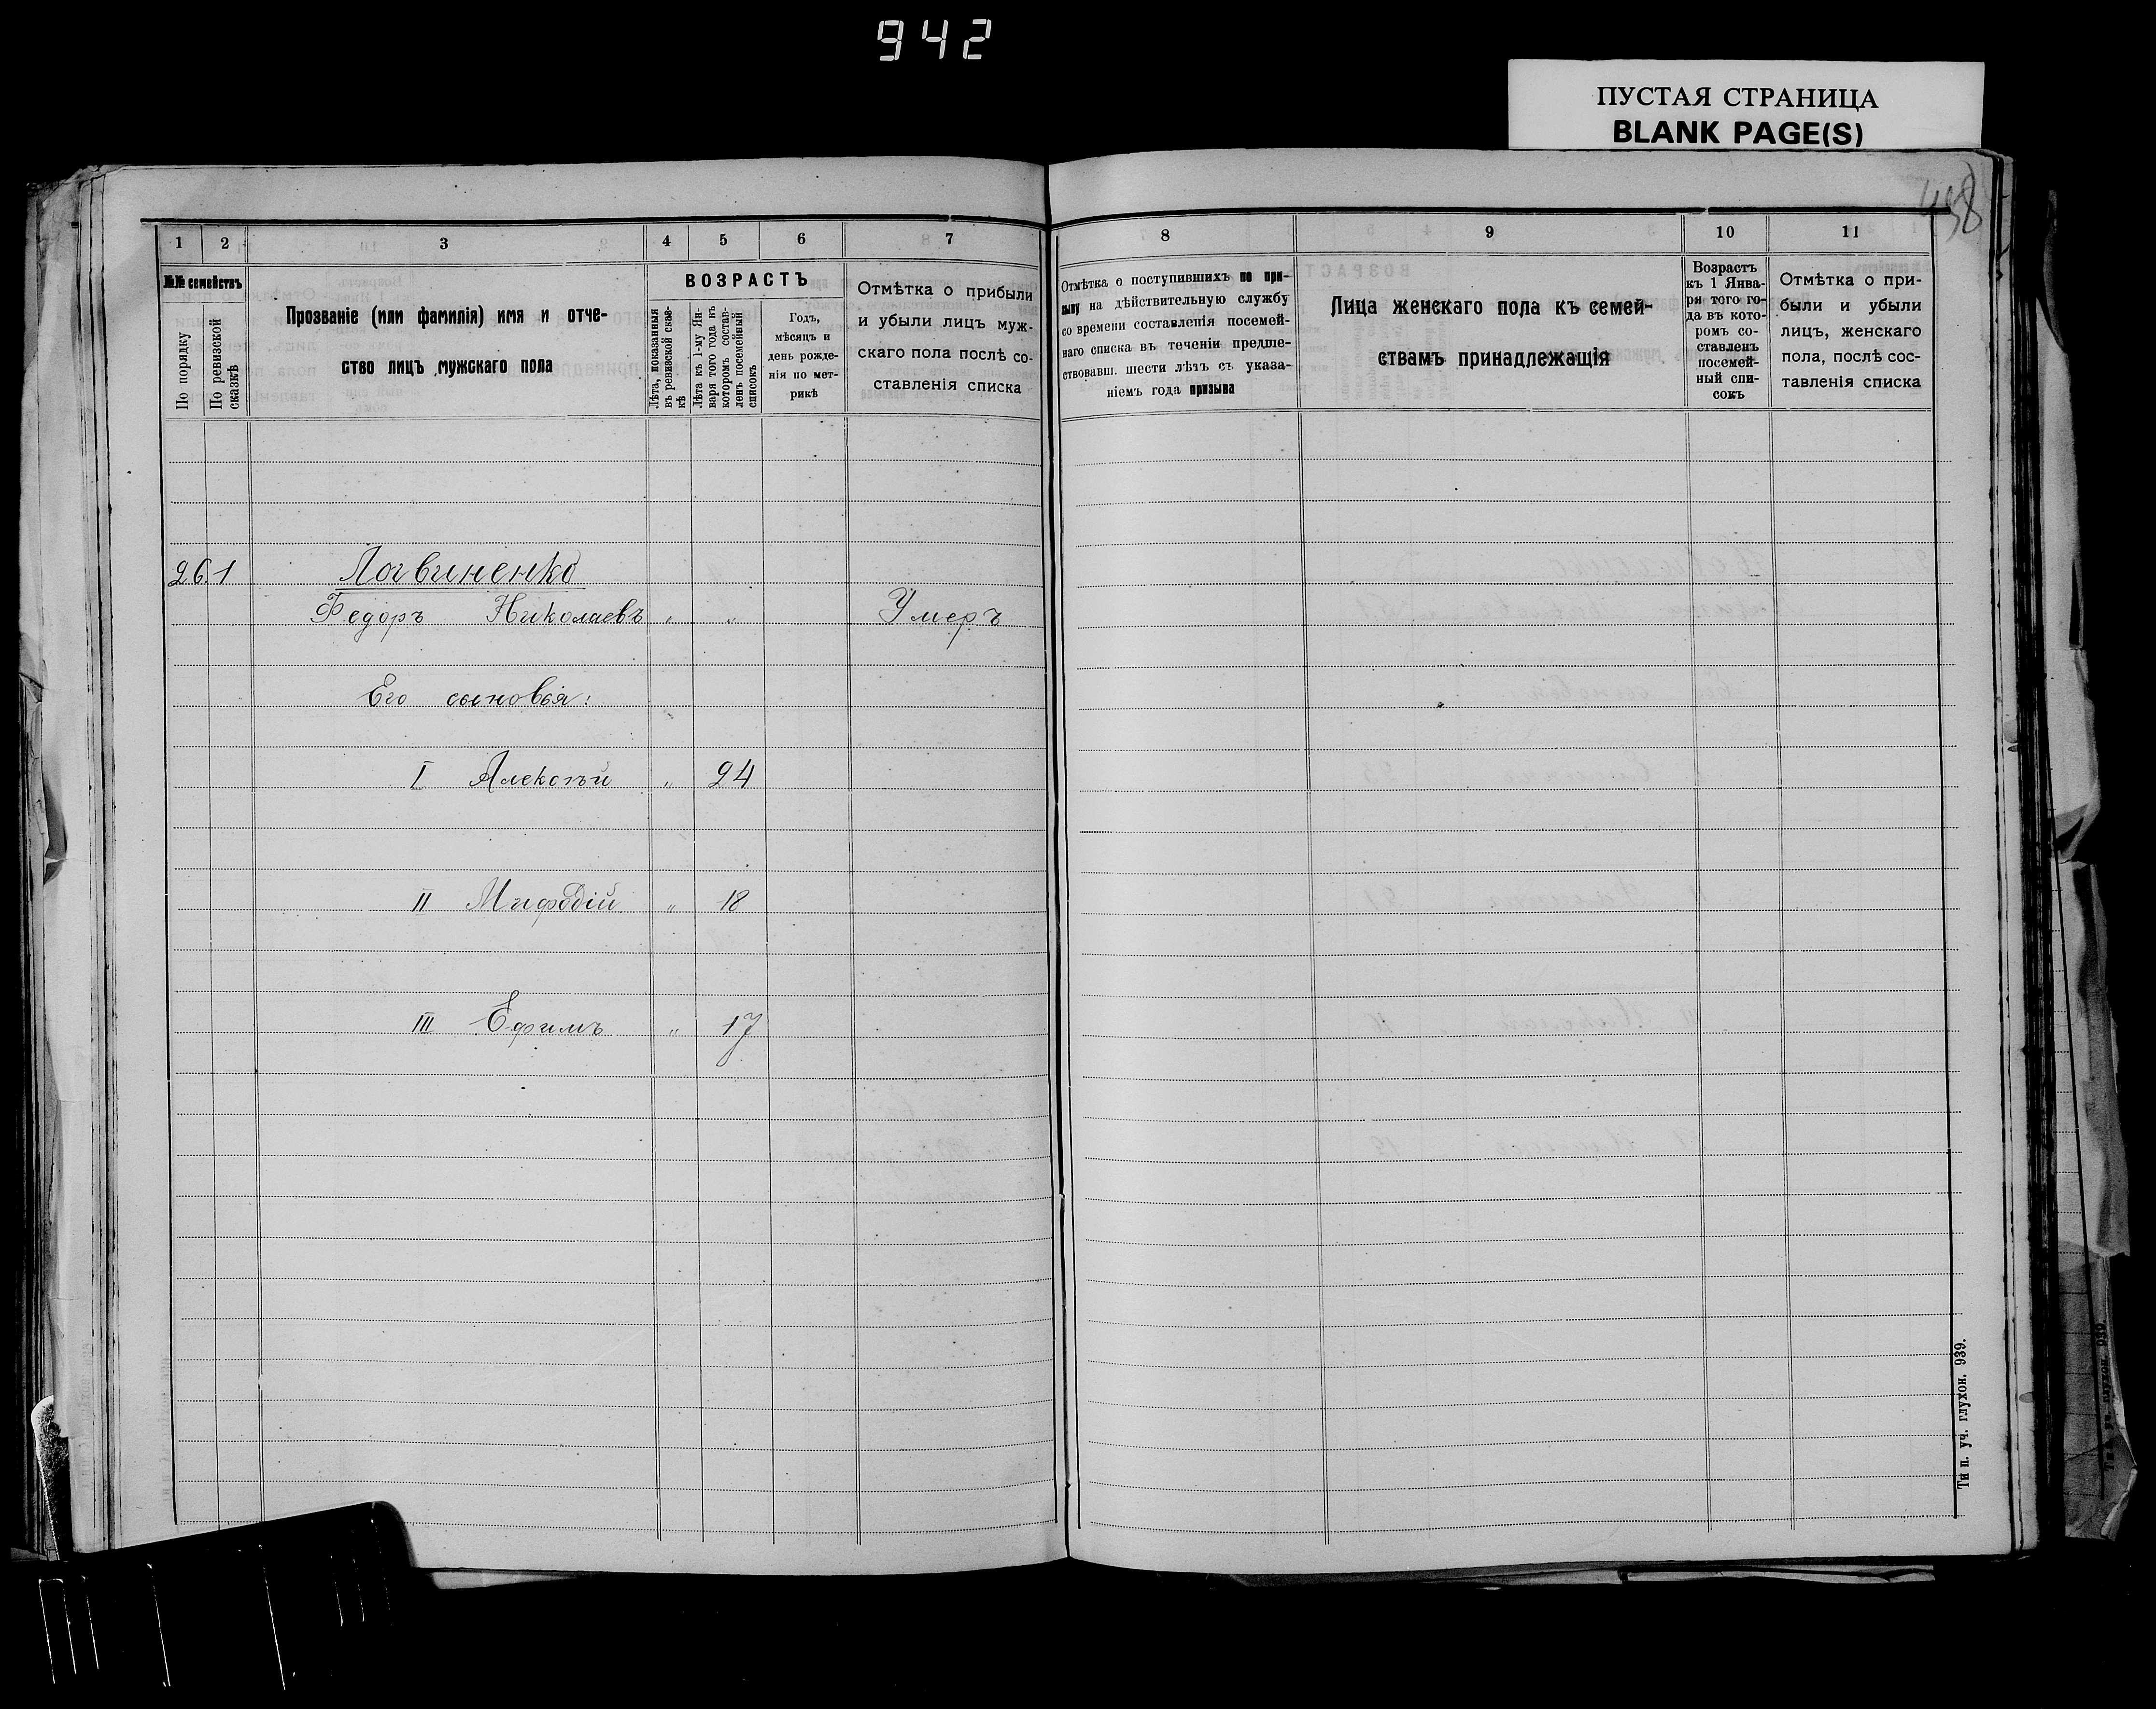 942
ПУСТАЯ СТРАНИЦА
BLANK PAGE(S)
438
1 2 3 4 5 6 7
№№ семействъ
По порядку
По ревизской сказкѣ
Прозваніе (или фамилія) имя и отче-
ство лицъ мужскаго пола
ВОЗРАСТЪ
Лѣта, показанныя
въ ревизской сказ-
кѣ
Лѣта къ 1-му Ян-
варя того года къ
которомъ состав-
ленъ посемейный
списокъ
Годъ,
мѣсяцъ и
день рожде-
нія по мет-
рикѣ
Отмѣтка о прибыли
и убыли лицъ муж-
скаго пола послѣ со-
ставленія списка
261 Логвиненко
Федоръ Николаевъ „ „ Умеръ
Его сыновья:
I Алексѣй „ 24
II Мифодій „ 18
III Ефимъ „ 17
8 9 10 11
Отмѣтка о поступившихъ по при-
зыву на дѣйствительную службу
со времени составленія посемей-
наго списка въ теченіи предше-
ствовавш. шести лѣтъ съ указа-
ніемъ года призыва
Лица женскаго пола къ семей-
ствамъ принадлежащія
Возрастъ
къ 1 Янва-
ря того го-
да въ кото-
ромъ со-
ставленъ
посемей-
ный спи-
сокъ
Отмѣтка о при-
были и убыли
лицъ, женскаго
пола, послѣ сос-
тавленія списка
Тип. уч. глухон. 939.